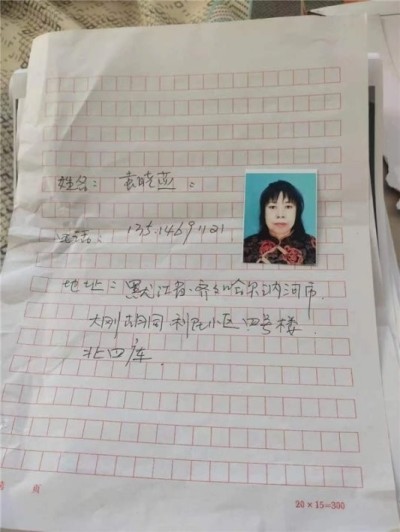 姓名：袁晓燕：
电话：13514691121
地址：黑龙江省.齐齐哈尔讷河市.
大刚胡同 利民小区 四号楼
北四库
页
20×15=300